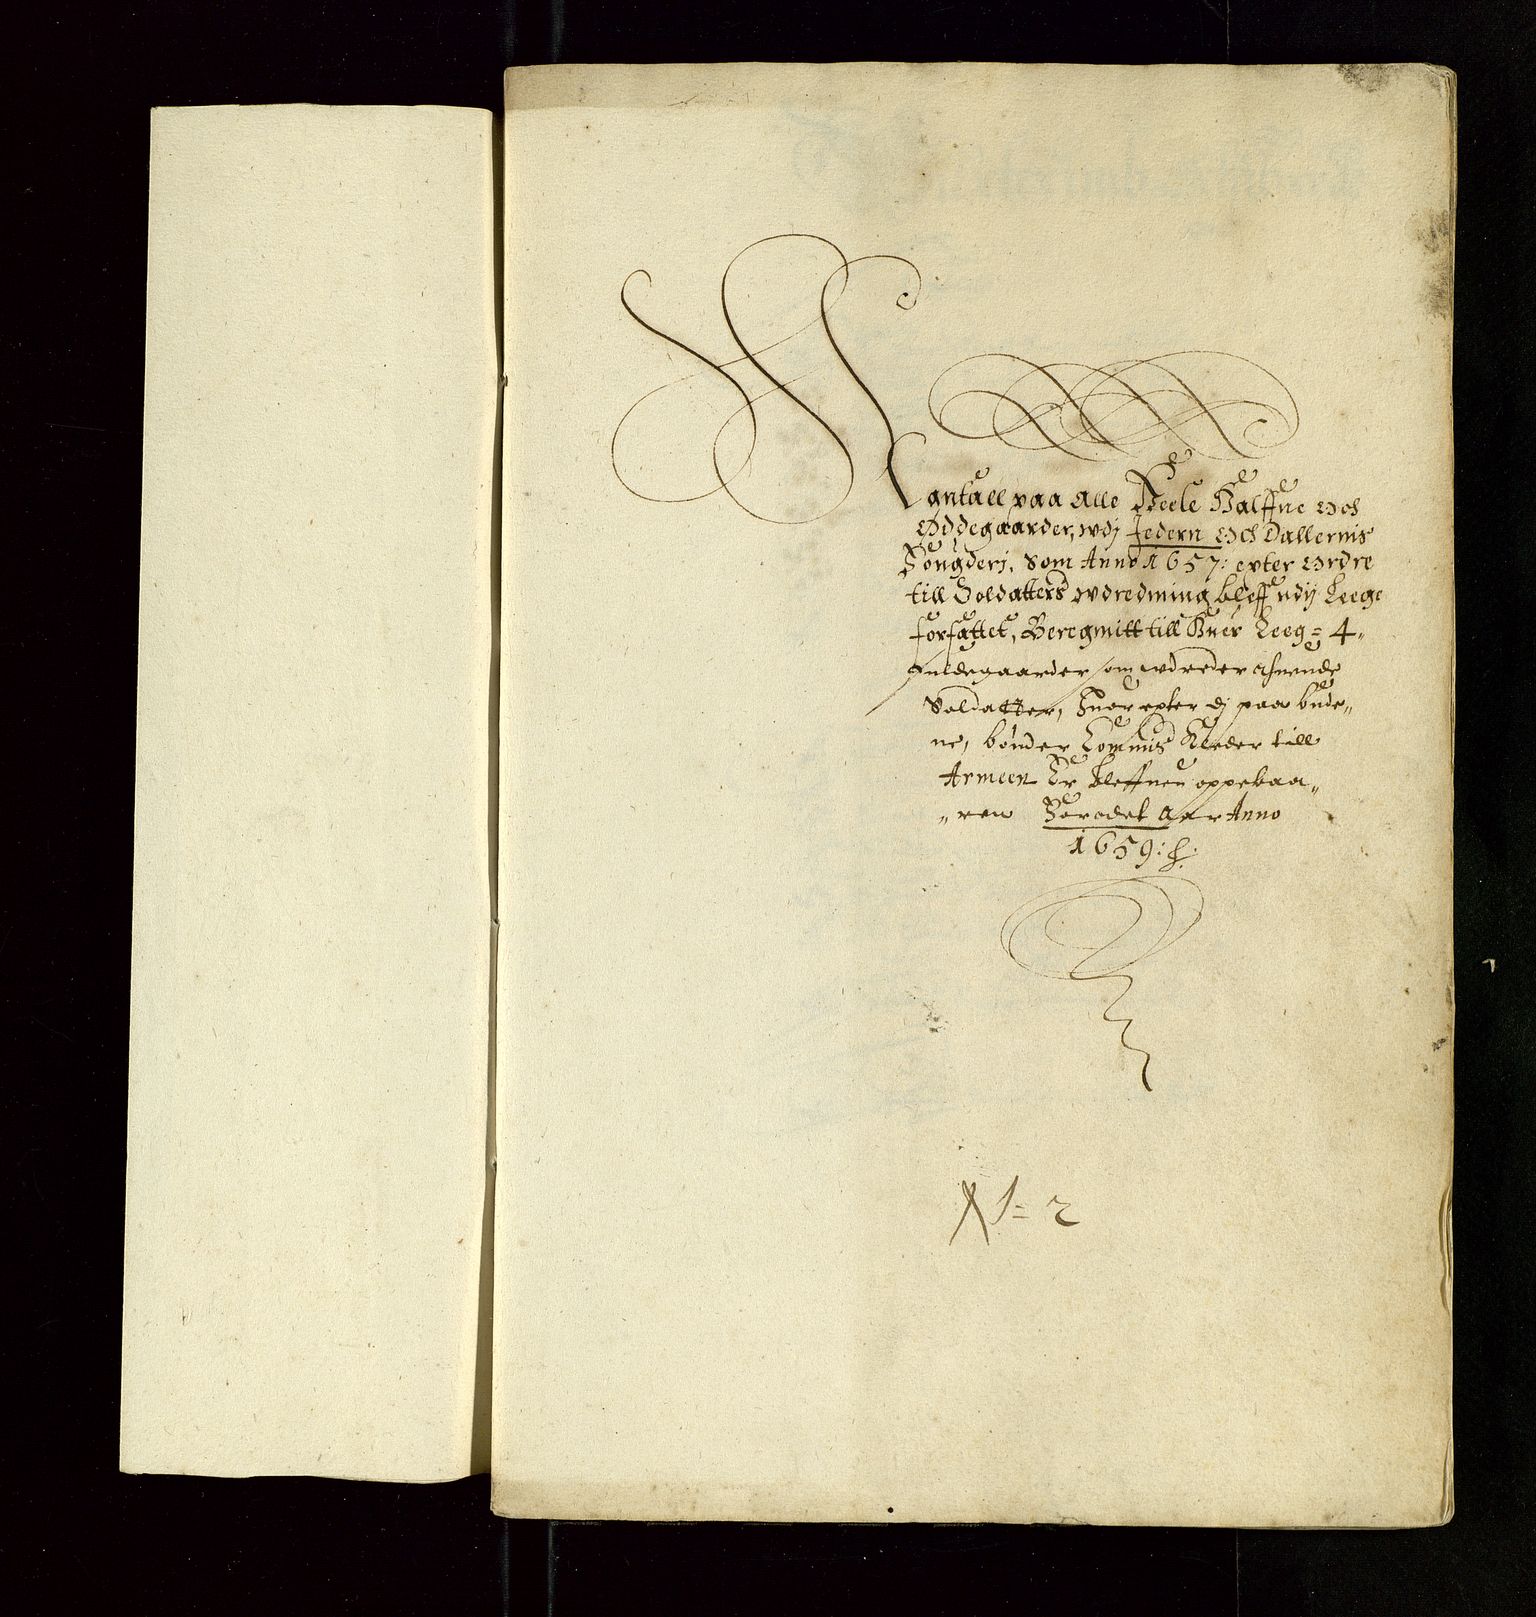 Mantall paa Alle Heele Halffue och
Øddegaarder, wdj Jedern och Dallernis
Fougderj, Som Anno 1657: epter ordre
till Soldatters wdredning bleff udij Leege
forfattet, Beregnitt till Huer Leeg = 4„
fuldegaarder som wdreder
Soldatter, Huor epter dj paa bude„
ne, bønder Commis Kleder till
Armeen Er bleffuen oppebaa„
„ren Forodet Aar Anno
1659:
N= 2